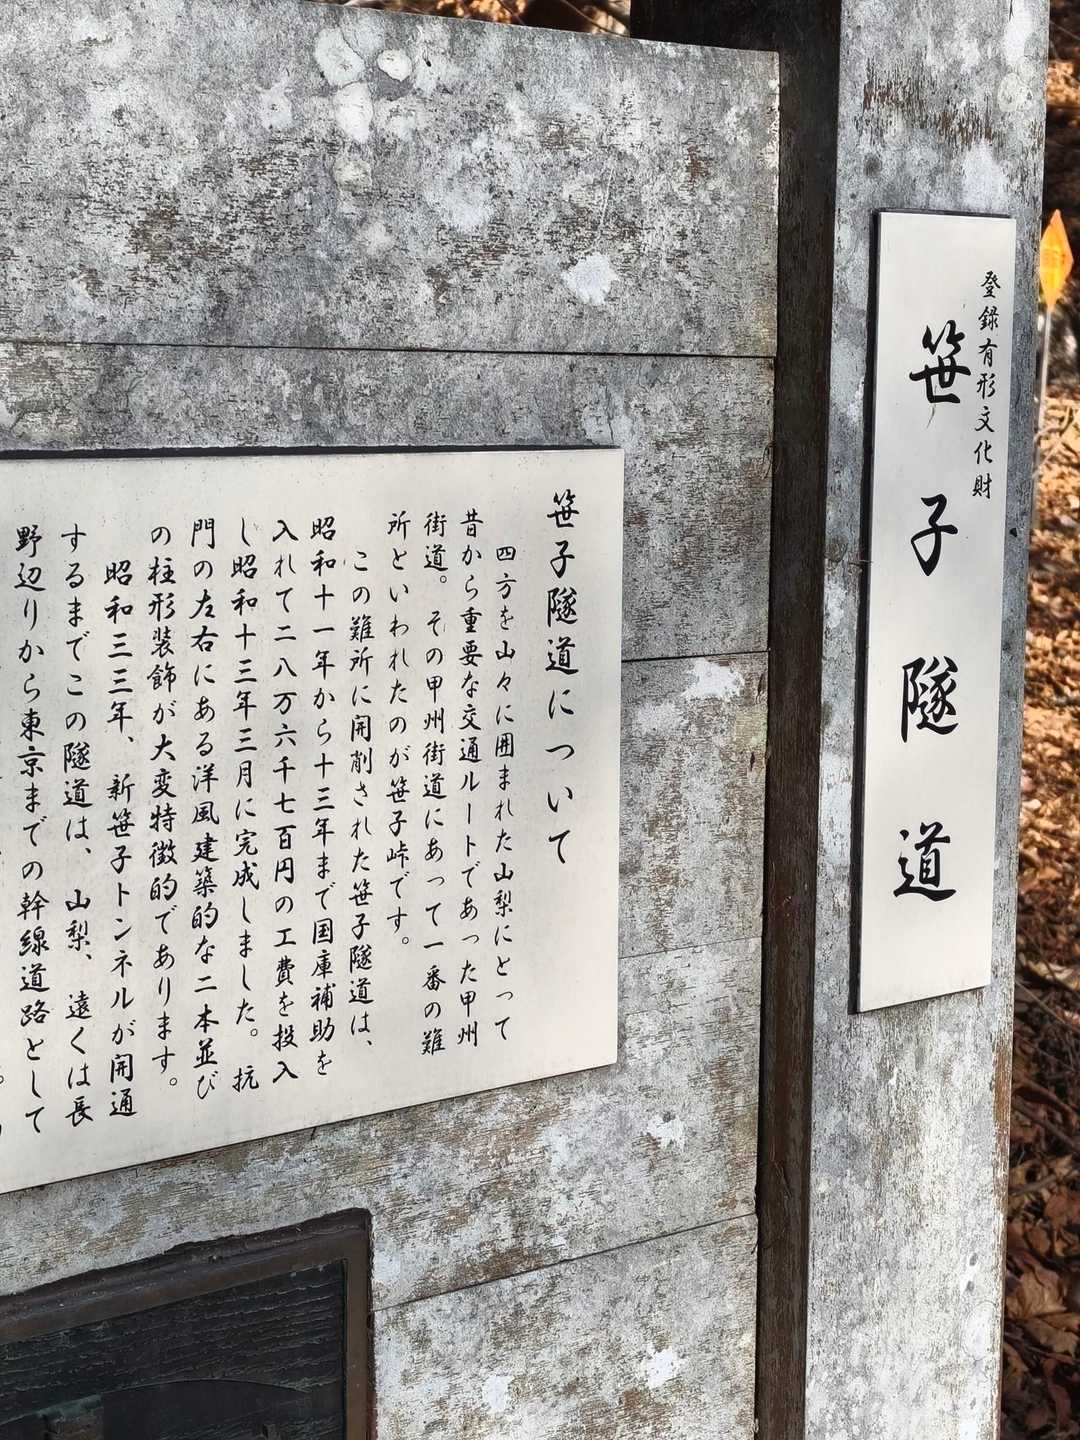 登録有形文化財
笹子隧道
笹子隧道について
四方を山々に囲まれた山梨にとって
昔から重要な交通ルートであった甲州
街道。その甲州街道にあって一番の難
所といわれたのが笹子峠です。
この難所に開削された笹子隧道は、
昭和十一年から十三年まで国庫補助を
入れて二八万六千七百円の工費を投入
し昭和十三年三月に完成しました。抗
門の左右にある洋風建築的な二本並び
の柱形装飾が大変特徴的であります。
昭和三三年、新笹子トンネルが開通
するまでこの隧道は、山梨、遠くは長
野辺りから東京までの幹線道路として